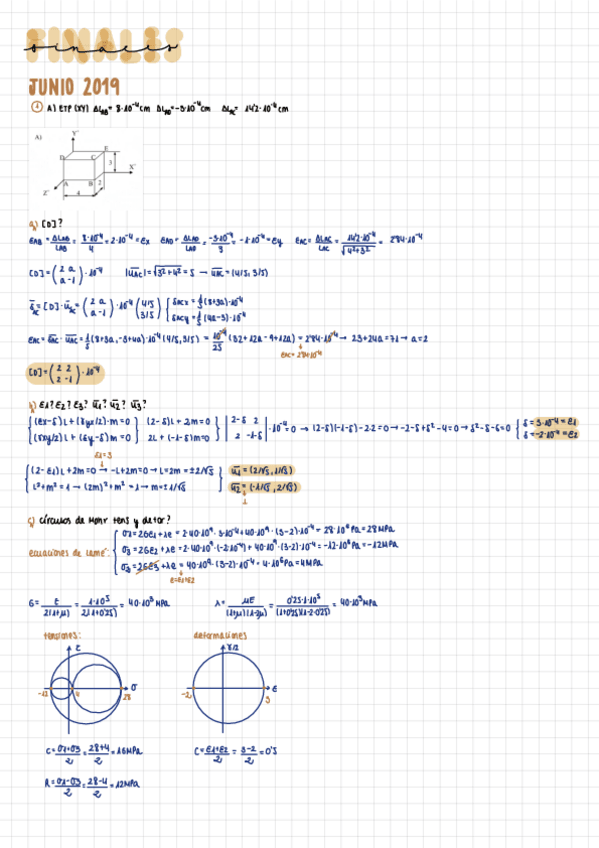 FINALES
finales
JUNIO 2019
① A) ETP (XY) ΔLAB = 8·10⁻⁴cm ΔLAD = -3·10⁻⁴cm ΔLAC = 14'2·10⁻⁴cm
A)
Y'
E
D
C
3
X'
A
B
2
Z'
4
a) [D]?
εAB = ΔLAB/LAB = 8·10⁻⁴/4 = 2·10⁻⁴ = εx εAD = ΔLAD/LAD = -3·10⁻⁴/3 = -1·10⁻⁴ = εy εAC = ΔLAC/LAC = 14'2·10⁻⁴/√4²+3² = 2'84·10⁻⁴
[D] = (2 a / a -1)·10⁻⁴ |uAC| = √3²+4² = 5 → uAC = (4/5, 3/5)
δAC = [D]·uAC = (2 a / a -1)·10⁻⁴ (4/5 / 3/5) { δACx = 1/5 (8+3a)·10⁻⁴
δACy = 1/5 (4a-3)·10⁻⁴
εAC = δAC·uAC = 1/5 (8+3a, -3+4a)·10⁻⁴ (4/5, 3/5) = 10⁻⁴/25 (32+12a-9+12a) = 2'84·10⁻⁴ → 23+24a = 71 → a = 2
εAC = 2'84·10⁻⁴
[D] = (2 2 / 2 -1)·10⁻⁴
b) ε1? ε2? ε3? u1? u2? u3?
{ (εx-δ)L + (γyx/2)·m = 0 } (2-δ)L + 2m = 0 } | 2-δ 2 / 2 -1-δ |·10⁻⁴ = 0 → (2-δ)(-1-δ) - 2·2 = 0 → -2-δ+δ²-4 = 0 → δ²-δ-6 = 0 { δ = 3·10⁻⁴ = ε1
(γxy/2)L + (εy-δ)m = 0 } 2L + (-1-δ)m = 0 } δ = -2·10⁻⁴ = ε2
ε1 = 3
{ (2-ε1)L + 2m = 0 → -L+2m = 0 → L = 2m = ±2/√5 } u1 = (2/√5, 1/√5)
L²+m² = 1 → (2m)²+m² = 1 → m = ±1/√5 u2 = (-1/√5, 2/√5)
c) círculos de Mohr tens y defor?
ecuaciones de Lamé: { σ1 = 2Gε1+λe = 2·40·10⁹·3·10⁻⁴+40·10⁹·(3-2)·10⁻⁴ = 28·10⁶Pa = 28MPa
σ3 = 2Gε2+λe = 2·40·10⁹·(-2·10⁻⁴)+40·10⁹·(3-2)·10⁻⁴ = -12·10⁶Pa = -12MPa
σ3 = 2Gε3+λe = 40·10⁹·(3-2)·10⁻⁴ = 4·10⁶Pa = 4MPa
e = ε1+ε2
G = E/2(1+μ) = 1·10⁵/2(1+0'25) = 40·10³ MPa λ = μE/(1+μ)(1-2μ) = 0'25·1·10⁵/(1+0'25)(1-2·0'25) = 40·10³MPa
tensiones: deformaciones
τ
σ
-12
4
28
γ/2
ε
-2
3
C = σ1+σ3/2 = 28+4/2 = 16MPa C = ε1+ε2/2 = 3-2/2 = 0'5
R = σ1-σ3/2 = 28-4/2 = 12MPa